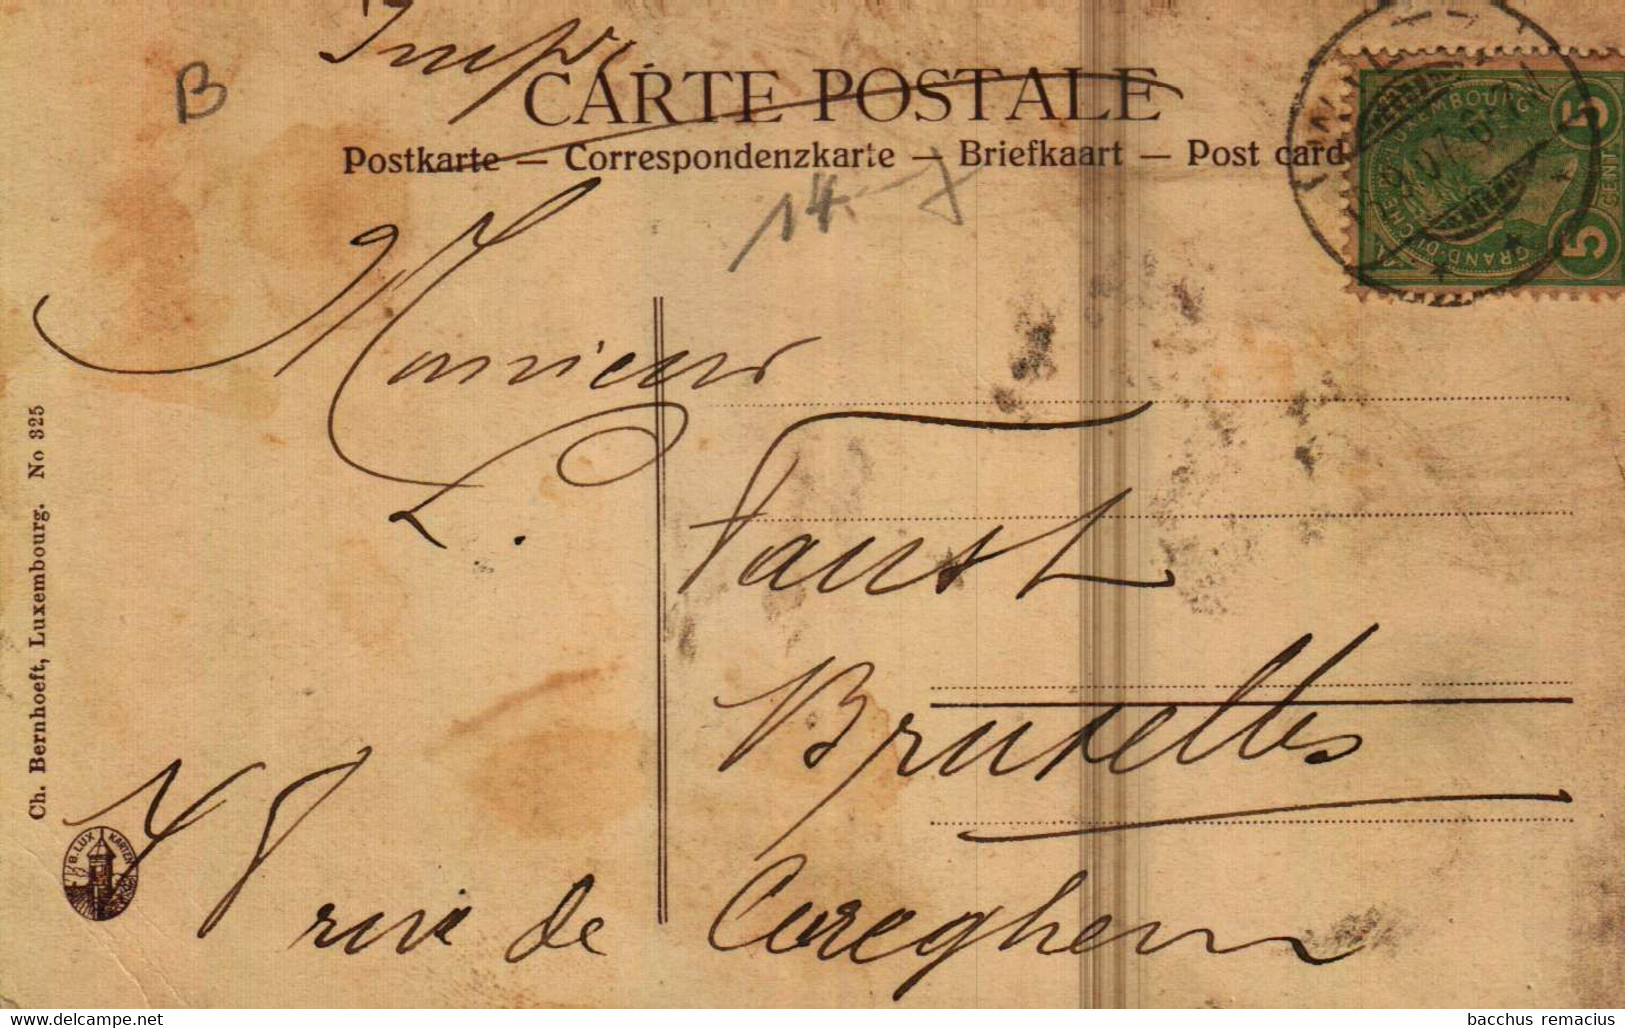 Imp.
CARTE POSTALE
B
Postkarte — Correspondenzkarte — Briefkaart — Post card
14
GRAND-DUCHÉ DE LUXEMBOURG
5 5
CENT.
Monsieur
L. Faust
Bruxelles
rue de Cureghem
Ch. Bernhoeft, Luxembourg. No 325
B. LUX KARTEN
bacchus remacius